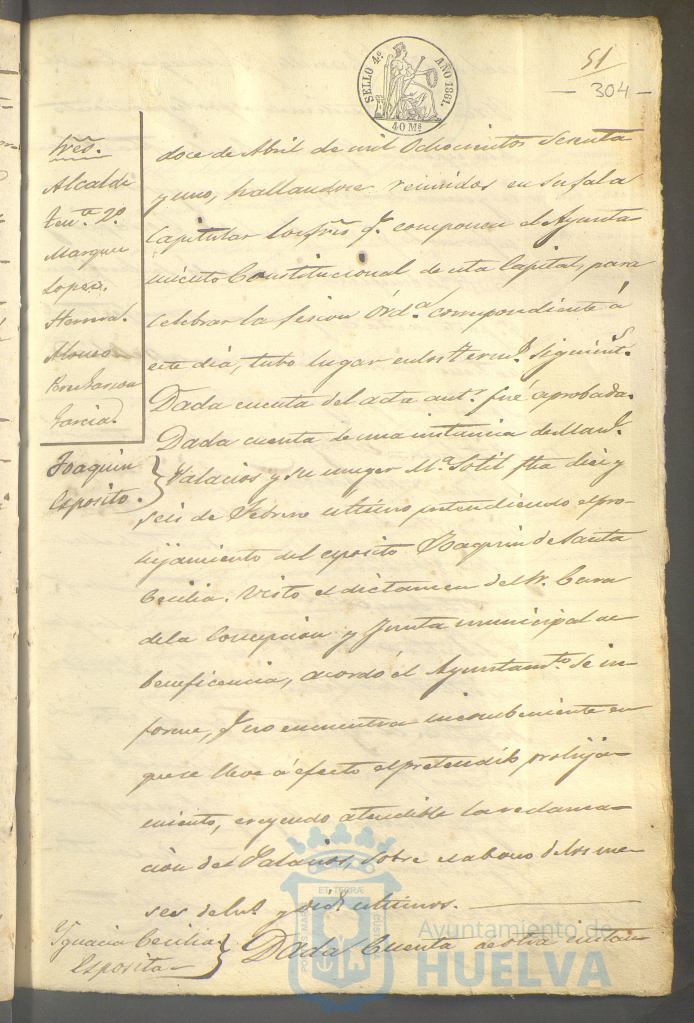 SELLO 4º AÑO 1861.
40 Ms
51
304
Sres.
Alcalde
Tente. 2º
Marquez
Lopez.
Herrera.
Alonso
Garcia.
doce de Abril de mil Ochocientos Sesenta
y uno, hallandose reunidos en su Sala
Capitular los Sres. q. componen el Ayunta-
miento Constitucional de esta Capital, para
celebrar la sesion Ordª correspondiente á
este dia, tubo lugar en los termns. siguients.
Dada cuenta del acta antr. fué aprobada.
Joaquin
Esposito.
Dada cuenta de una instancia de Manl.
Palacios y su muger Mª Sotil fha diez y
seis de Febrero ultimo pretendiendo el pro-
hijamiento del esposito Joaquin de Santa
Cecilia. Visto el dictamen del Sr. Cura
de la Concepcion y Junta municipal de
beneficencia, acordó el Ayuntamto. se in-
forme, q. no encuentra incombeniente en
que se lleve á efecto el pretendido prohija-
miento, creyendo atendible la reclama-
cion del Palacios, sobre el abono de los me-
ses de y ultimos.
Ygnacia Cecilia
Esposita
Dada Cuenta de otra instan-
Ayuntamiento de
HUELVA